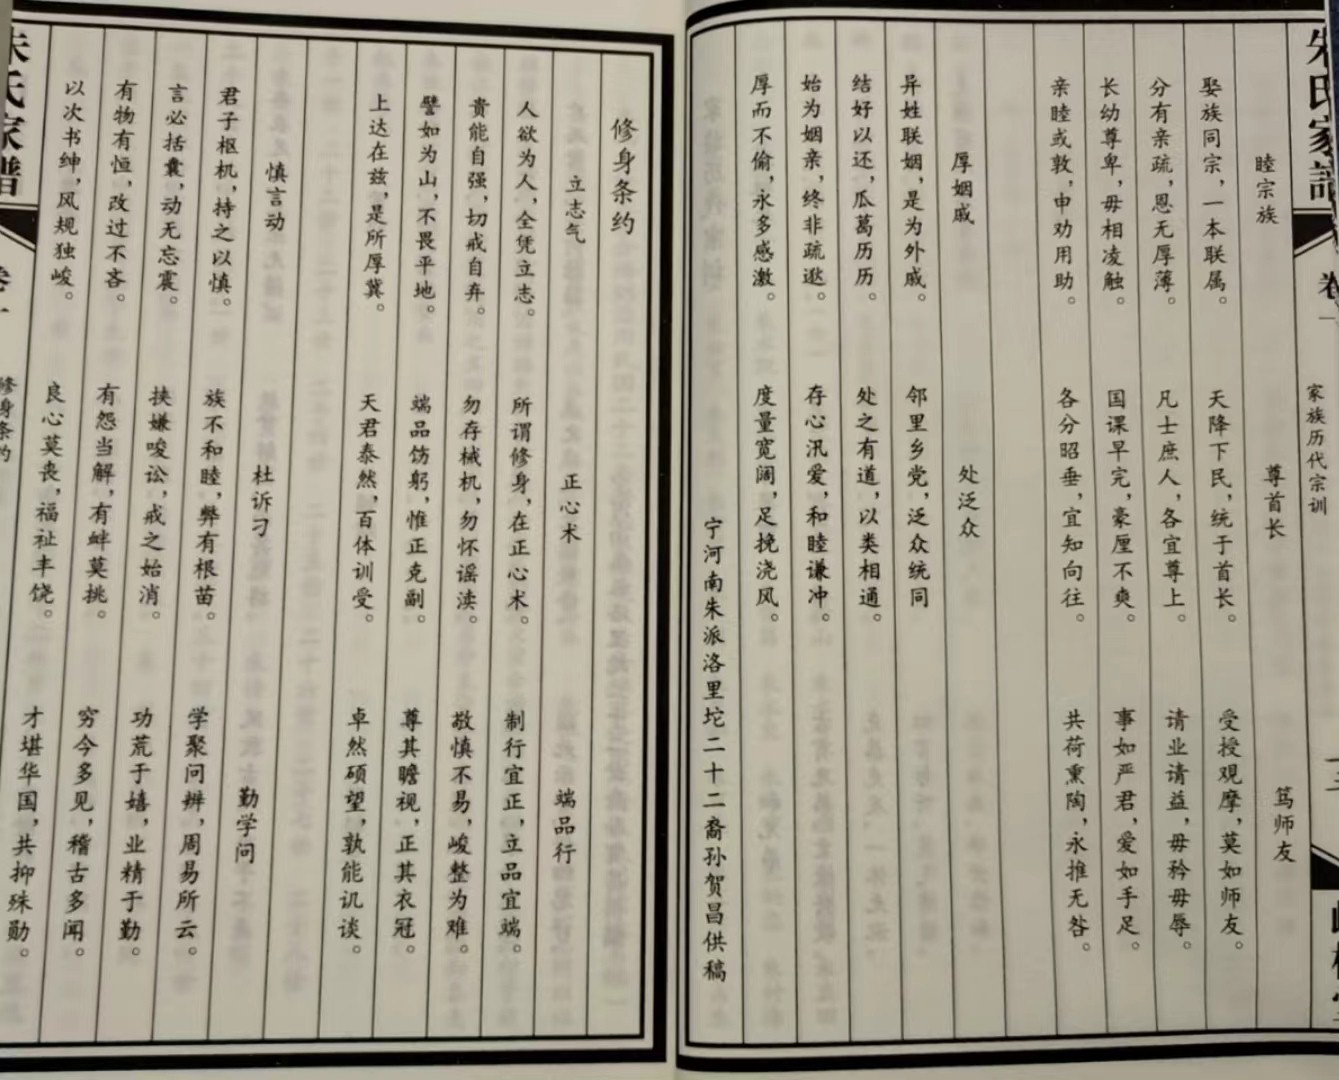 朱氏家谱
卷一
家族历代宗训
睦宗族
娶族同宗，一本联属。
分有亲疏，恩无厚薄。
长幼尊卑，毋相凌触。
亲睦或敦，申劝用助。
尊首长
天降下民，统于首长。
凡士庶人，各宜尊上。
国课早完，豪厘不爽。
各分昭垂，宜知向往。
笃师友
受授观摩，莫如师友。
请业请益，毋矜毋辱。
事如严君，爱如手足。
共荷熏陶，永推无咎。
厚姻戚
异姓联姻，是为外戚。
结好以还，瓜葛历历。
始为姻亲，终非疏逖。
厚而不偷，永多感激。
处泛众
邻里乡党，泛众统同
处之有道，以类相通。
存心汎爱，和睦谦冲。
度量宽阔，足挽浇风。
宁河南朱派洛里坨二十二裔孙贺昌供稿
修身条约
立志气
人欲为人，全凭立志。
贵能自强，切戒自弃。
譬如为山，不畏平地。
上达在兹，是所厚冀。
正心术
所谓修身，在正心术。
勿存械机，勿怀谣渎。
端品饬躬，惟正克副。
天君泰然，百体训受。
端品行
制行宜正，立品宜端。
敬慎不易，峻整为难。
尊其瞻视，正其衣冠。
卓然硕望，孰能讥谈。
慎言动
君子枢机，持之以慎。
言必括囊，动无忘震。
有物有恒，改过不吝。
以次书绅，风规独峻。
杜诉刁
族不和睦，弊有根苗。
挟嫌唆讼，戒之始消。
有怨当解，有衅莫挑。
良心莫丧，福祉丰饶。
勤学问
学聚问辨，周易所云。
功荒于嬉，业精于勤。
穷今多见，稽古多闻。
才堪华国，共抑殊勋。
朱氏家谱
卷一
修身条约